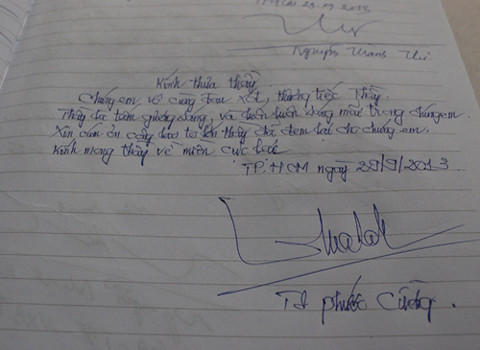 TP.HCM 29.09.2013
Nguyễn Thanh Thi
Kính thưa thầy.
Chúng em vô cùng đau xót, thương tiếc Thầy.
Thầy là tấm gương sáng, và luôn luôn sống mãi trong chúng em.
Xin cảm ơn công lao to lớn thầy đã đem lại cho chúng em.
Kính mong thầy về miền cực lạc
TP.HCM ngày 29/9/2013
Tạ phước Cường.